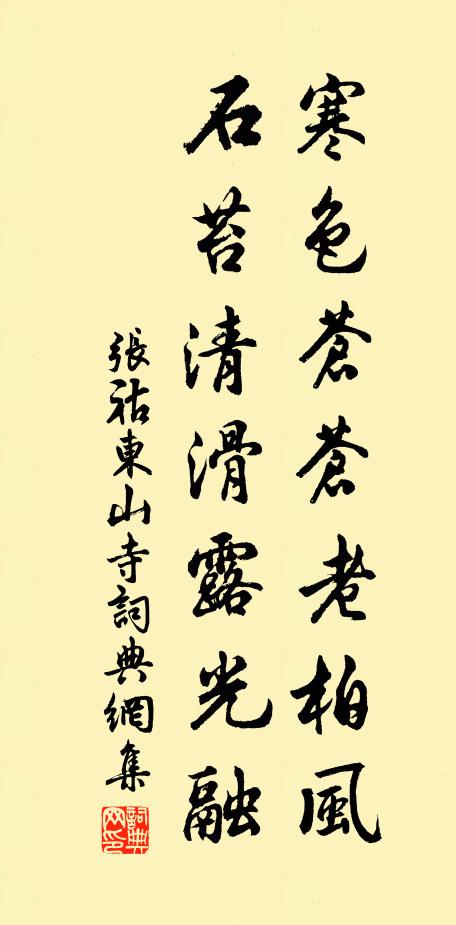 寒色蒼蒼老柏風
石苔清滑露光融
張祜東山寺詞典網集
詞典網印